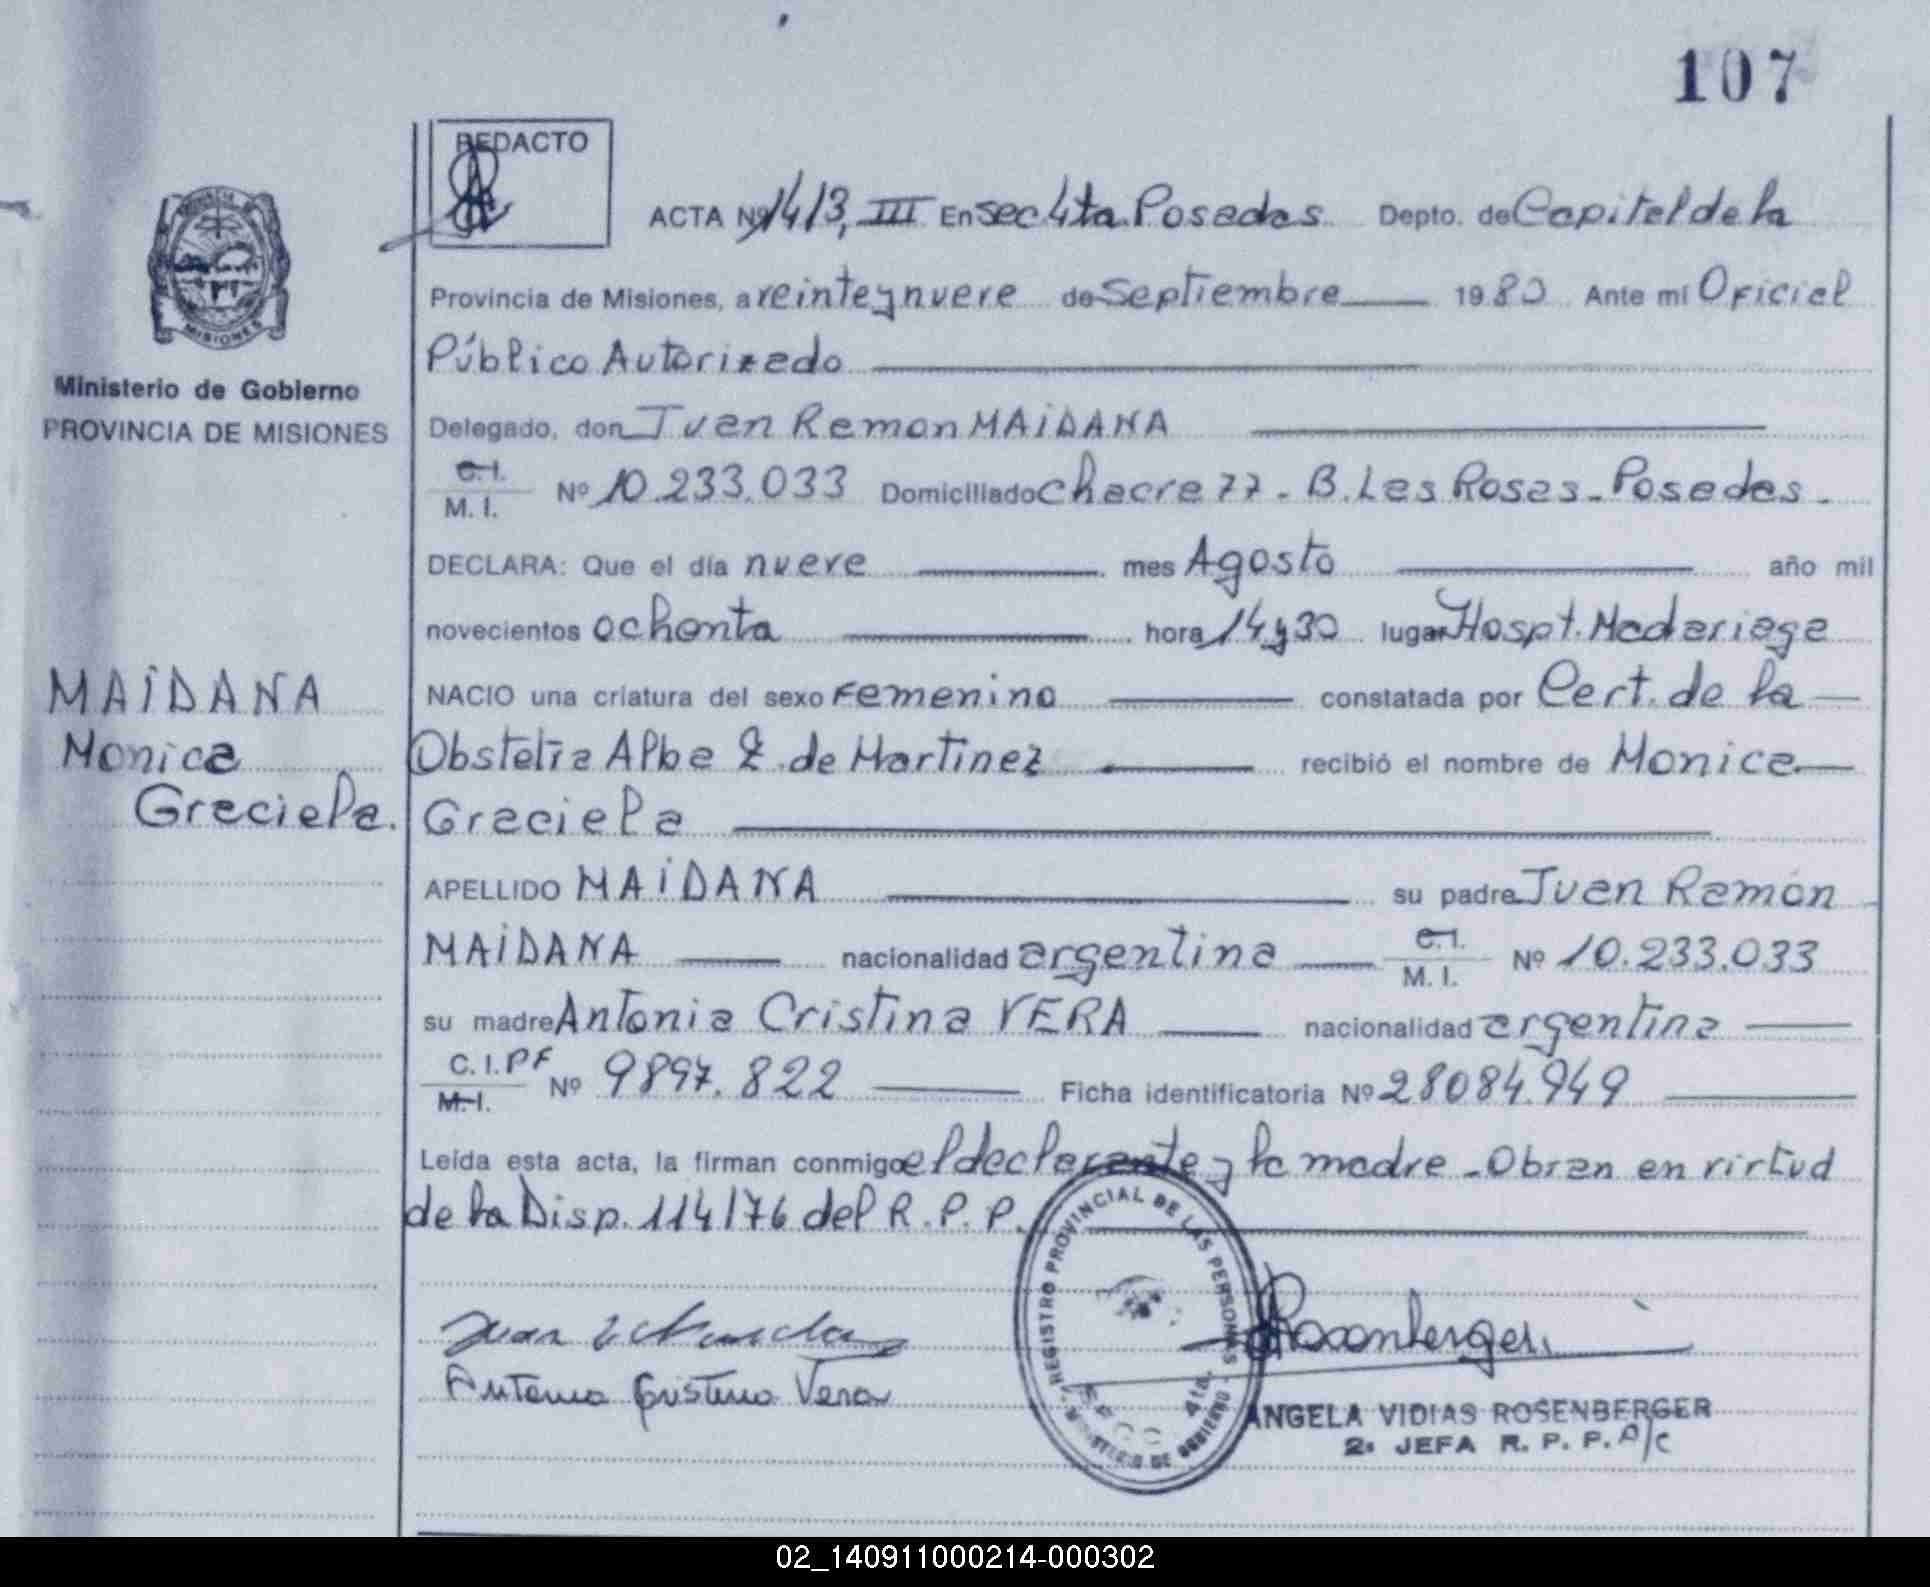 107
REDACTO
ACTA Nº 1413, III En sec 4ta. Posadas Depto. de Capital de la
Provincia de Misiones, a veinteynueve de Septiembre 1980 Ante mí Oficial
Público Autorizado
Ministerio de Gobierno
PROVINCIA DE MISIONES
MISIONES
Delegado, don Juan Ramon MAiDANA
C.I.
M. I. Nº 10.233.033 Domiciliado chacra 77 - B. Las Rosas - Posadas -
DECLARA: Que el día nueve mes Agosto año mil
novecientos ochenta hora 14 y 30 lugar Hospt. Madariaga
NACIO una criatura del sexo Femenino constatada por Cert. de la
MAiDANA
Monica
Graciela.
Obstetra Alba Z. de Martinez recibió el nombre de Monica
Graciela
APELLIDO MAiDANA su padre Juan Ramón
MAiDANA nacionalidad argentina C.I. M. I. Nº 10.233.033
su madre Antonia Cristina VERA nacionalidad argentina
C. I. PF M.I. Nº 9897.822 Ficha identificatoria Nº 28084.949
Leída esta acta, la firman conmigo el declarante y la madre - Obran en virtud
de la Disp. 114/76 del R. P. P.
REGISTRO PROVINCIAL DE LAS PERSONAS
MINISTERIO DE GOBIERNO
4ta.
Juan
Antonia Cristina Vera
Rosenberger
ANGELA VIDIAS ROSENBERGER
2ª JEFA R. P. P. A/C
02_140911000214-000302